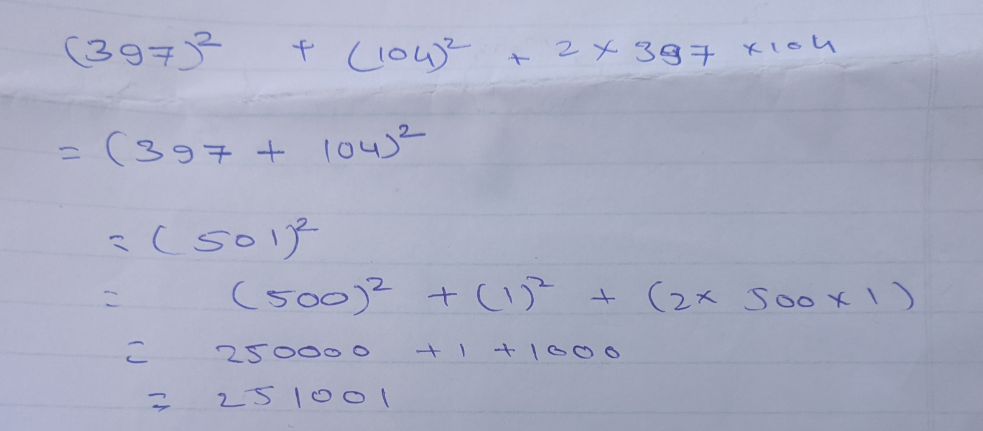 (397)² + (104)² + 2 × 397 × 104
= (397 + 104)²
= (501)²
= (500)² + (1)² + (2 × 500 × 1)
= 250000 + 1 + 1000
= 251001